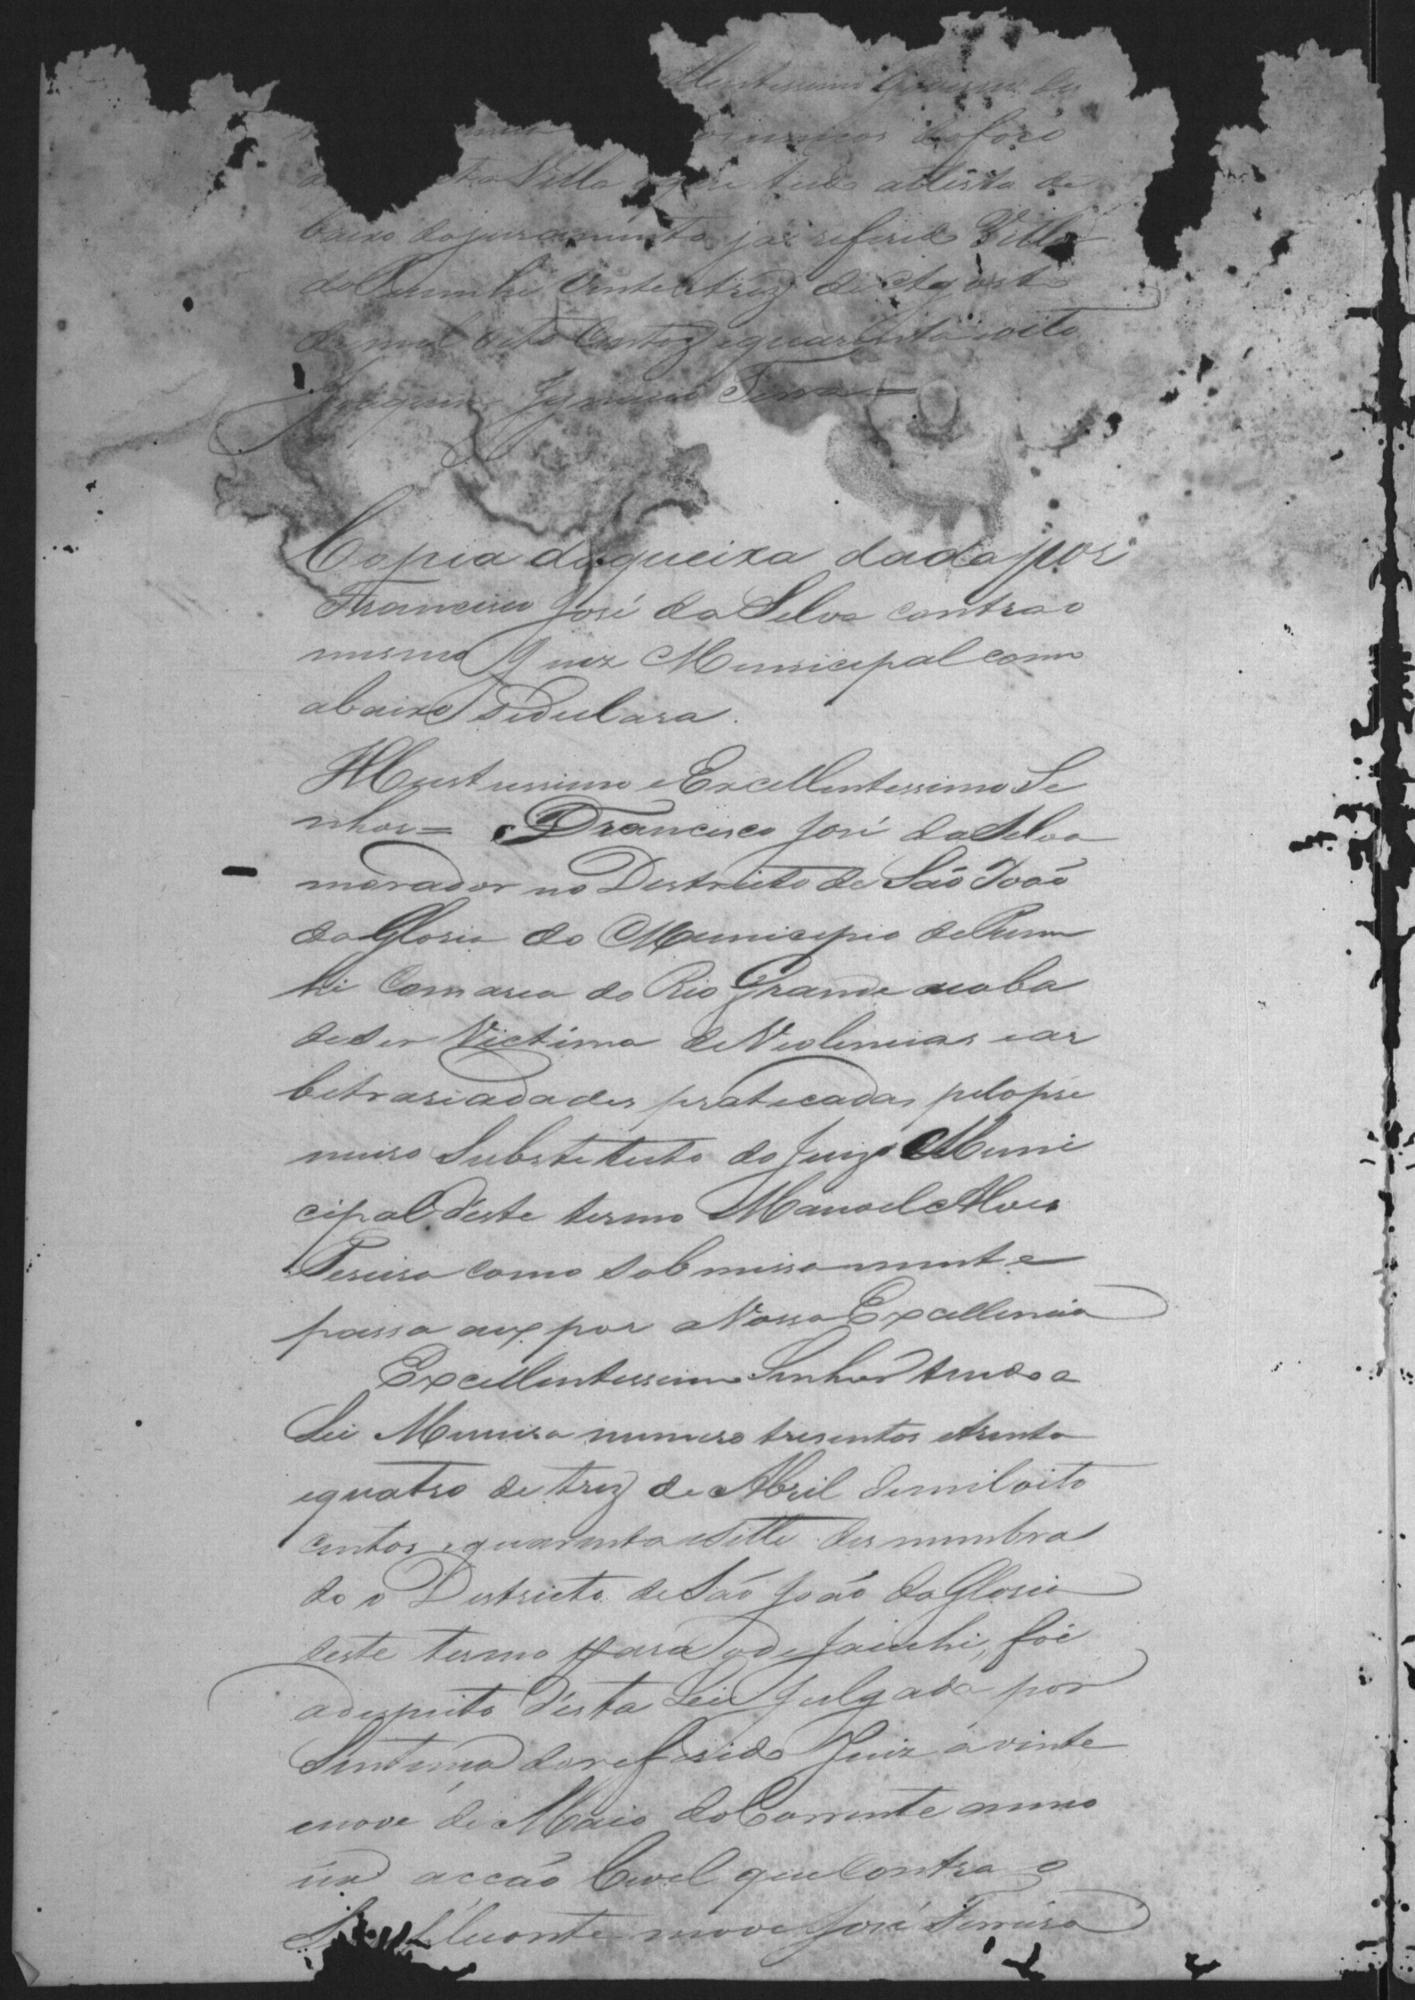 do foro
Villa attesta de
baixo do juramento ja referido Villa
do Piumhi vinte e trez de Agosto
de mil oito Centos e quarenta e oito
Joaquim Ignacio Terra =
Copia da queixa dada por
Francisco José da Silva contra o
mesmo Juiz Municipal como
abaixo se declara.
Illustrissimo e Excellentissimo Se
nhor = Francisco José da Silva
morador no Destricto de São João
da Gloria do Municipio de Pium
hi Comarca do Rio Grande acaba
de ser Victima de Violencias e ar
bitrariadades praticadas pelo pri
meiro Substituto do Juiz Muni
cipal d'este termo Manoel Alves
Pereira como submissamente
passa a expor a Vossa Excellencia
Excellentissimo Senhor tendo a
Lei Mineira numero tresentos e trinta
e quatro de trez de Abril de mil oito
centos e quarenta e sette desmembra
do o Destricto de São João da Gloria
deste termo para o de Jacuhi, foi
a despeito d'esta Lei julgada por
Sentença do referido Juiz a vinte
e nove de Maio do Corrente anno
accão Civel que contra o
Supplicante move José Ferreira